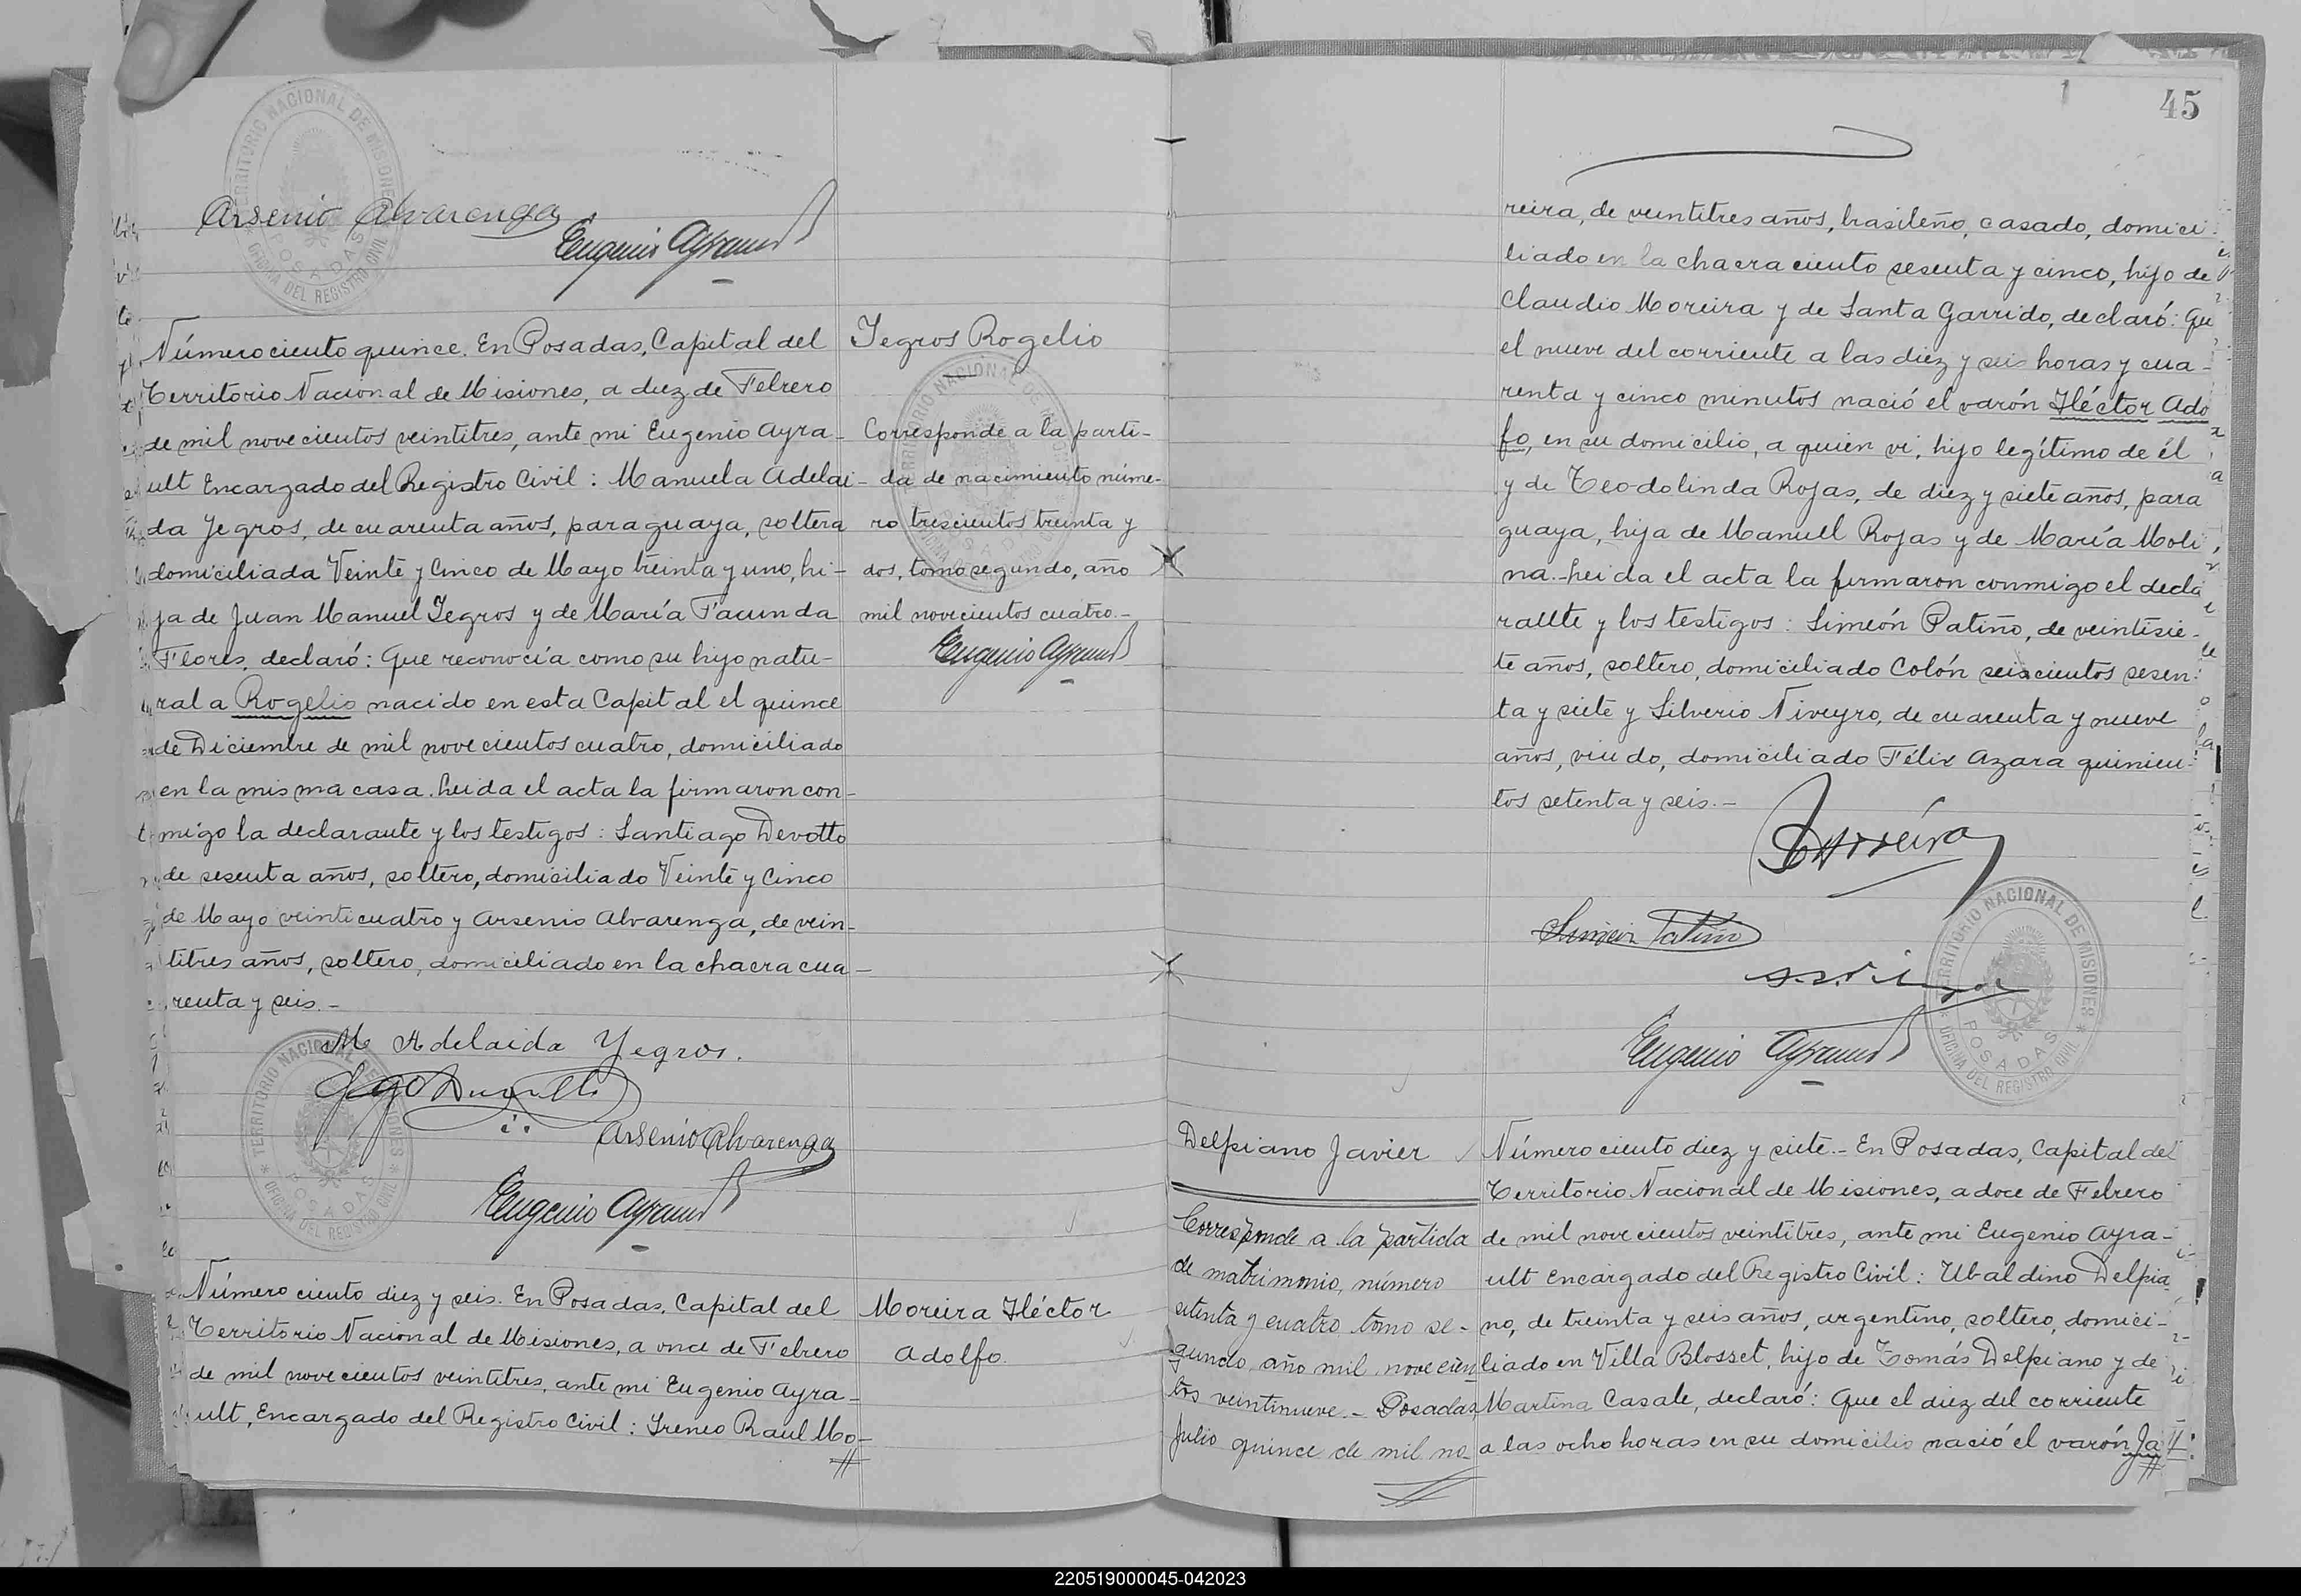 Arsenio Alvarenga
Eugenio Ayrault
Número ciento quince. En Posadas, Capital del
Territorio Nacional de Misiones, a diez de Febrero
de mil novecientos veintitres, ante mi Eugenio Ayra-
ult Encargado del Registro Civil: Manuela Adelai-
da Yegros, de cuarenta años, paraguaya, soltera
domiciliada Veinte y Cinco de Mayo treinta y uno, hi-
ja de Juan Manuel Yegros y de María Facunda
Flores, declaró: Que reconocía como su hijo natu-
ral a Rogelio nacido en esta Capital el quince
de Diciembre de mil novecientos cuatro, domiciliado
en la misma casa. Leida el acta la firmaron con-
migo la declarante y los testigos: Santiago Devotto
de sesenta años, soltero, domiciliado Veinte y Cinco
de Mayo veinticuatro y Arsenio Alvarenga, de vein-
titres años, soltero, domiciliado en la chacra cua-
renta y seis.-
M Adelaida Yegros.
Arsenio Alvarenga
Eugenio Ayrault
Número ciento diez y seis. En Posadas, Capital del
Territorio Nacional de Misiones, a once de Febrero
de mil novecientos veintitres, ante mi Eugenio Ayra-
ult, Encargado del Registro Civil: Ireneo Raul Mo-
Yegros Rogelio
Corresponde a la parti-
da de nacimiento núme-
ro trescientos treinta y
dos, tomo segundo, año
mil novecientos cuatro.-
Eugenio Ayrault
Moreira Héctor
Adolfo.
45
reira, de veintitres años, brasileño, casado, domici-
liado en la chacra ciento sesenta y cinco, hijo de
Claudio Moreira y de Santa Garrido, declaró: Qu
el nueve del corriente a las diez y seis horas y cua-
renta y cinco minutos nació el varón Héctor Ado
fo, en su domicilio, a quien vi, hijo legítimo de él
y de Teodolinda Rojas, de diez y siete años, para
guaya, hija de Manuel Rojas y de María Moli
na.- Leida el acta la firmaron conmigo el decla
rante y los testigos: Simeón Patiño, de veintisie-
te años, soltero, domiciliado Colón seiscientos sesen-
ta y siete y Silverio Niveyro, de cuarenta y nueve
años, viudo, domiciliado Félix Azara quinien-
tos setenta y seis.-
Simeón Patiño
Eugenio Ayrault
Delpiano Javier
Corresponde a la partida
de matrimonio, número
setenta y cuatro tomo se-
gundo, año mil novecien
tos veintinueve.- Posadas,
Julio quince de mil no-
Número ciento diez y siete.- En Posadas, Capital del
Territorio Nacional de Misiones, a doce de Febrero
de mil novecientos veintitres, ante mi Eugenio Ayra-
ult Encargado del Registro Civil: Ubaldino Delpia
no, de treinta y seis años, argentino, soltero, domici-
liado en Villa Blosset, hijo de Tomás Delpiano y de
Martina Casale, declaró: Que el diez del corriente
a las ocho horas en su domicilio nació el varón Ja
TERRITORIO NACIONAL DE MISIONES
OFICINA DEL REGISTRO CIVIL
POSADAS
220519000045-042023